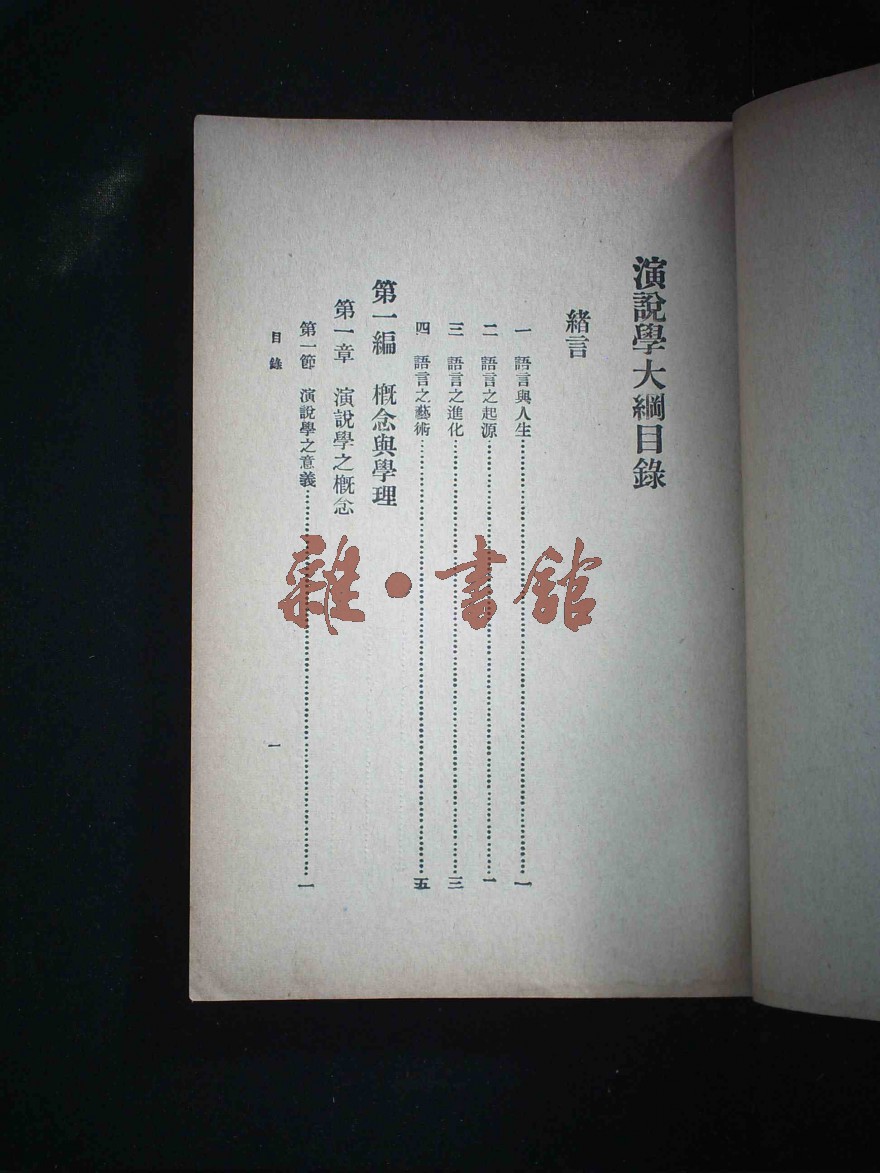 演說學大綱目錄
緒言
一 語言與人生……一
二 語言之起源……一
三 語言之進化……三
四 語言之藝術……五
第一編 概念與學理
第一章 演說學之概念
第一節 演說學之意義……一
目錄
一
雜·書館